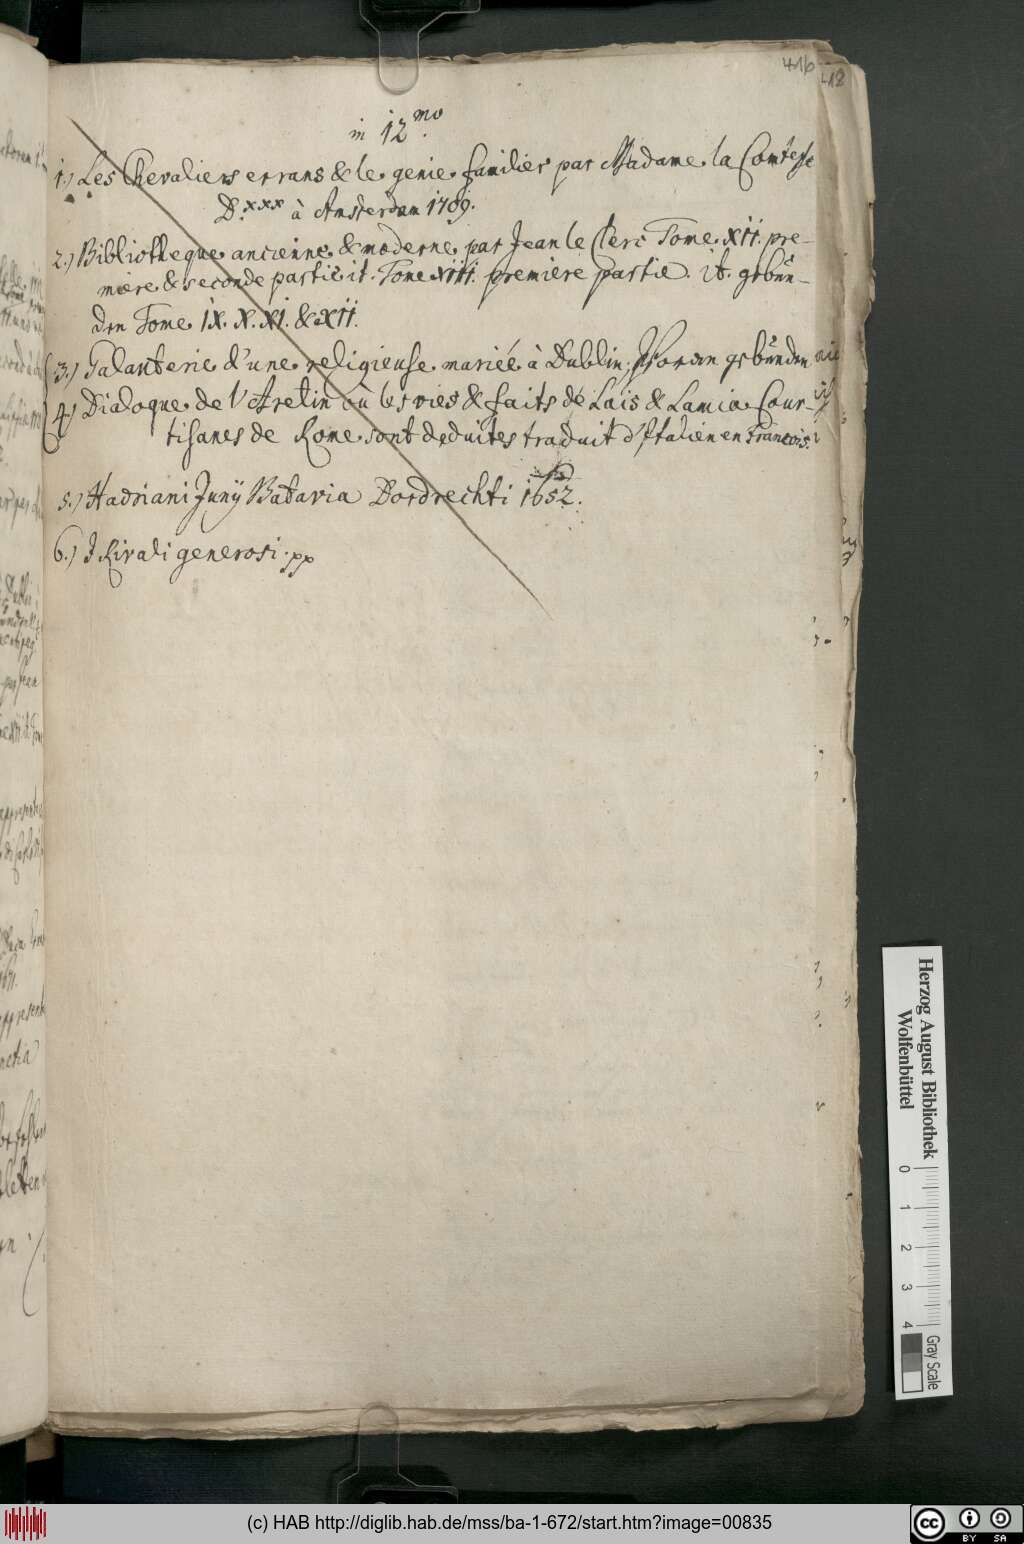 416
418
in 12.mo
1.) Les Chevaliers errans & le genie familier par Madame la Comtesse
D.xxx à Amsterdam 1709.
2.) Bibliotheque ancienne & moderne par Jean le Clerc Tome XII. pre-
miere & seconde partie it. Tome XIII. premiere partie. it. gebun-
den Tome IX. X. XI. & XII.
3.) Galanterie d'une religieuse mariée à Dublin. Woran gebunden
4.) Dialoque de l'Aretin où les vies & faits de Lais & Lamia Cour-
tisanes de Rome sont deduites traduit d'Italien en François.
5.) Hadriani Junij Batavia Dordrechti 1652.
6.) I Rivali generosi. pp
Herzog August Bibliothek
Wolfenbüttel
0 1 2 3 4
Gray Scale
(c) HAB http://diglib.hab.de/mss/ba-1-672/start.htm?image=00835
cc BY SA